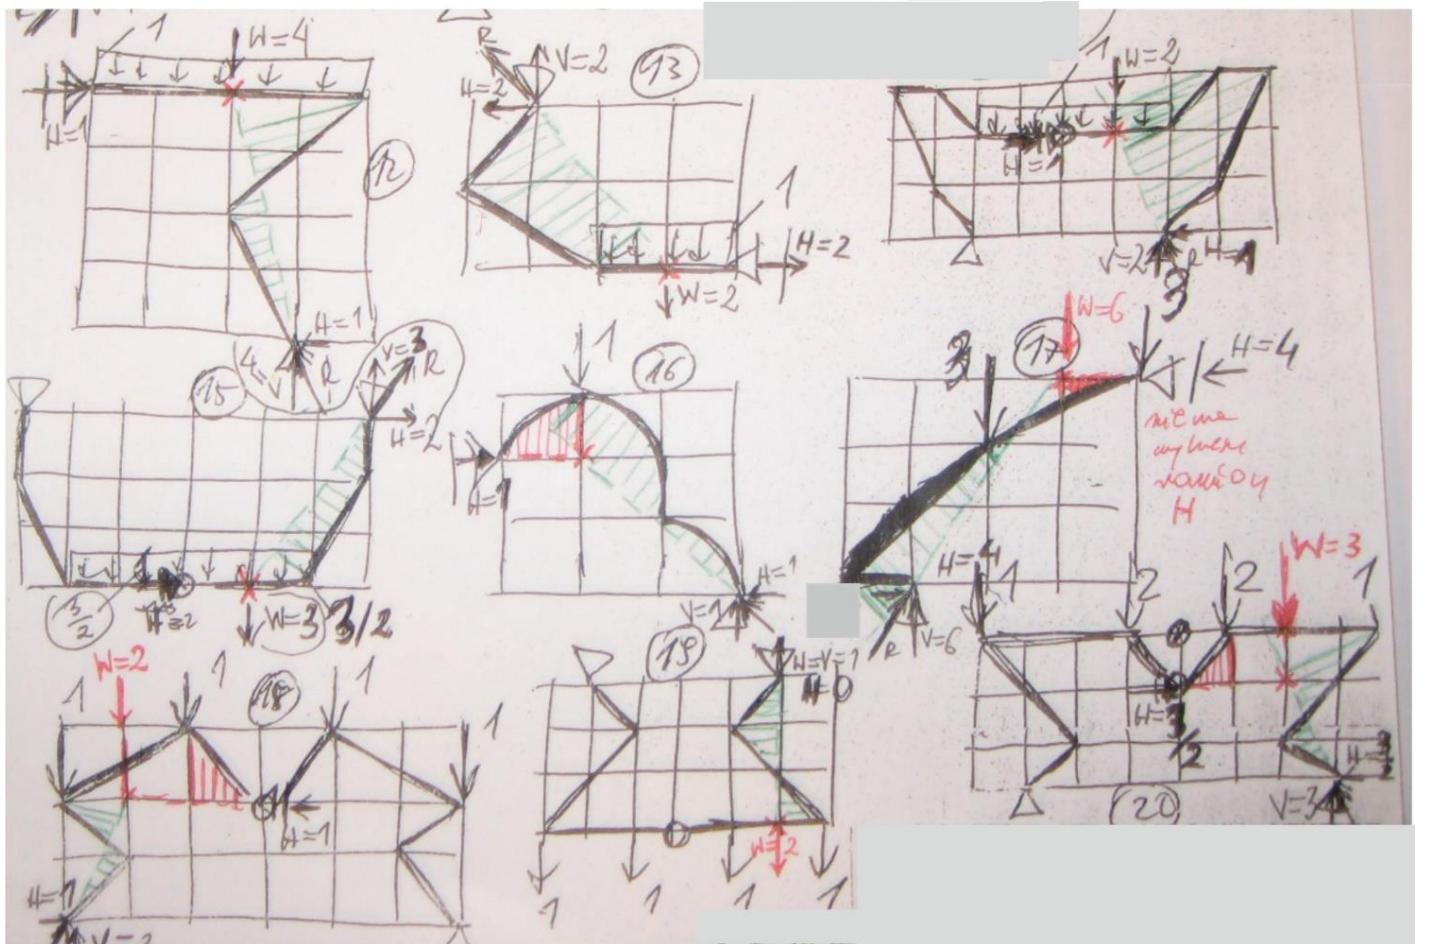 1
W=4
H=1
12
H=1
R
4
R
V=2
H=2
13
1
H=2
W=2
1
W=2
H=1
V=2
H=1
3
15
V=3
R
H=2
3/2
H=2
W=3
3/2
1
16
H=1
H=1
V=1
W=6
3
17
H=4
nie ma
H
R
V=6
H=4
W=2
1
1
18
1
1
H=1
H=1
V=2
19
W=V=1
H=0
W=2
1
1
1
1
1
2
2
W=3
1
H=3
2
H=3
V=3
20